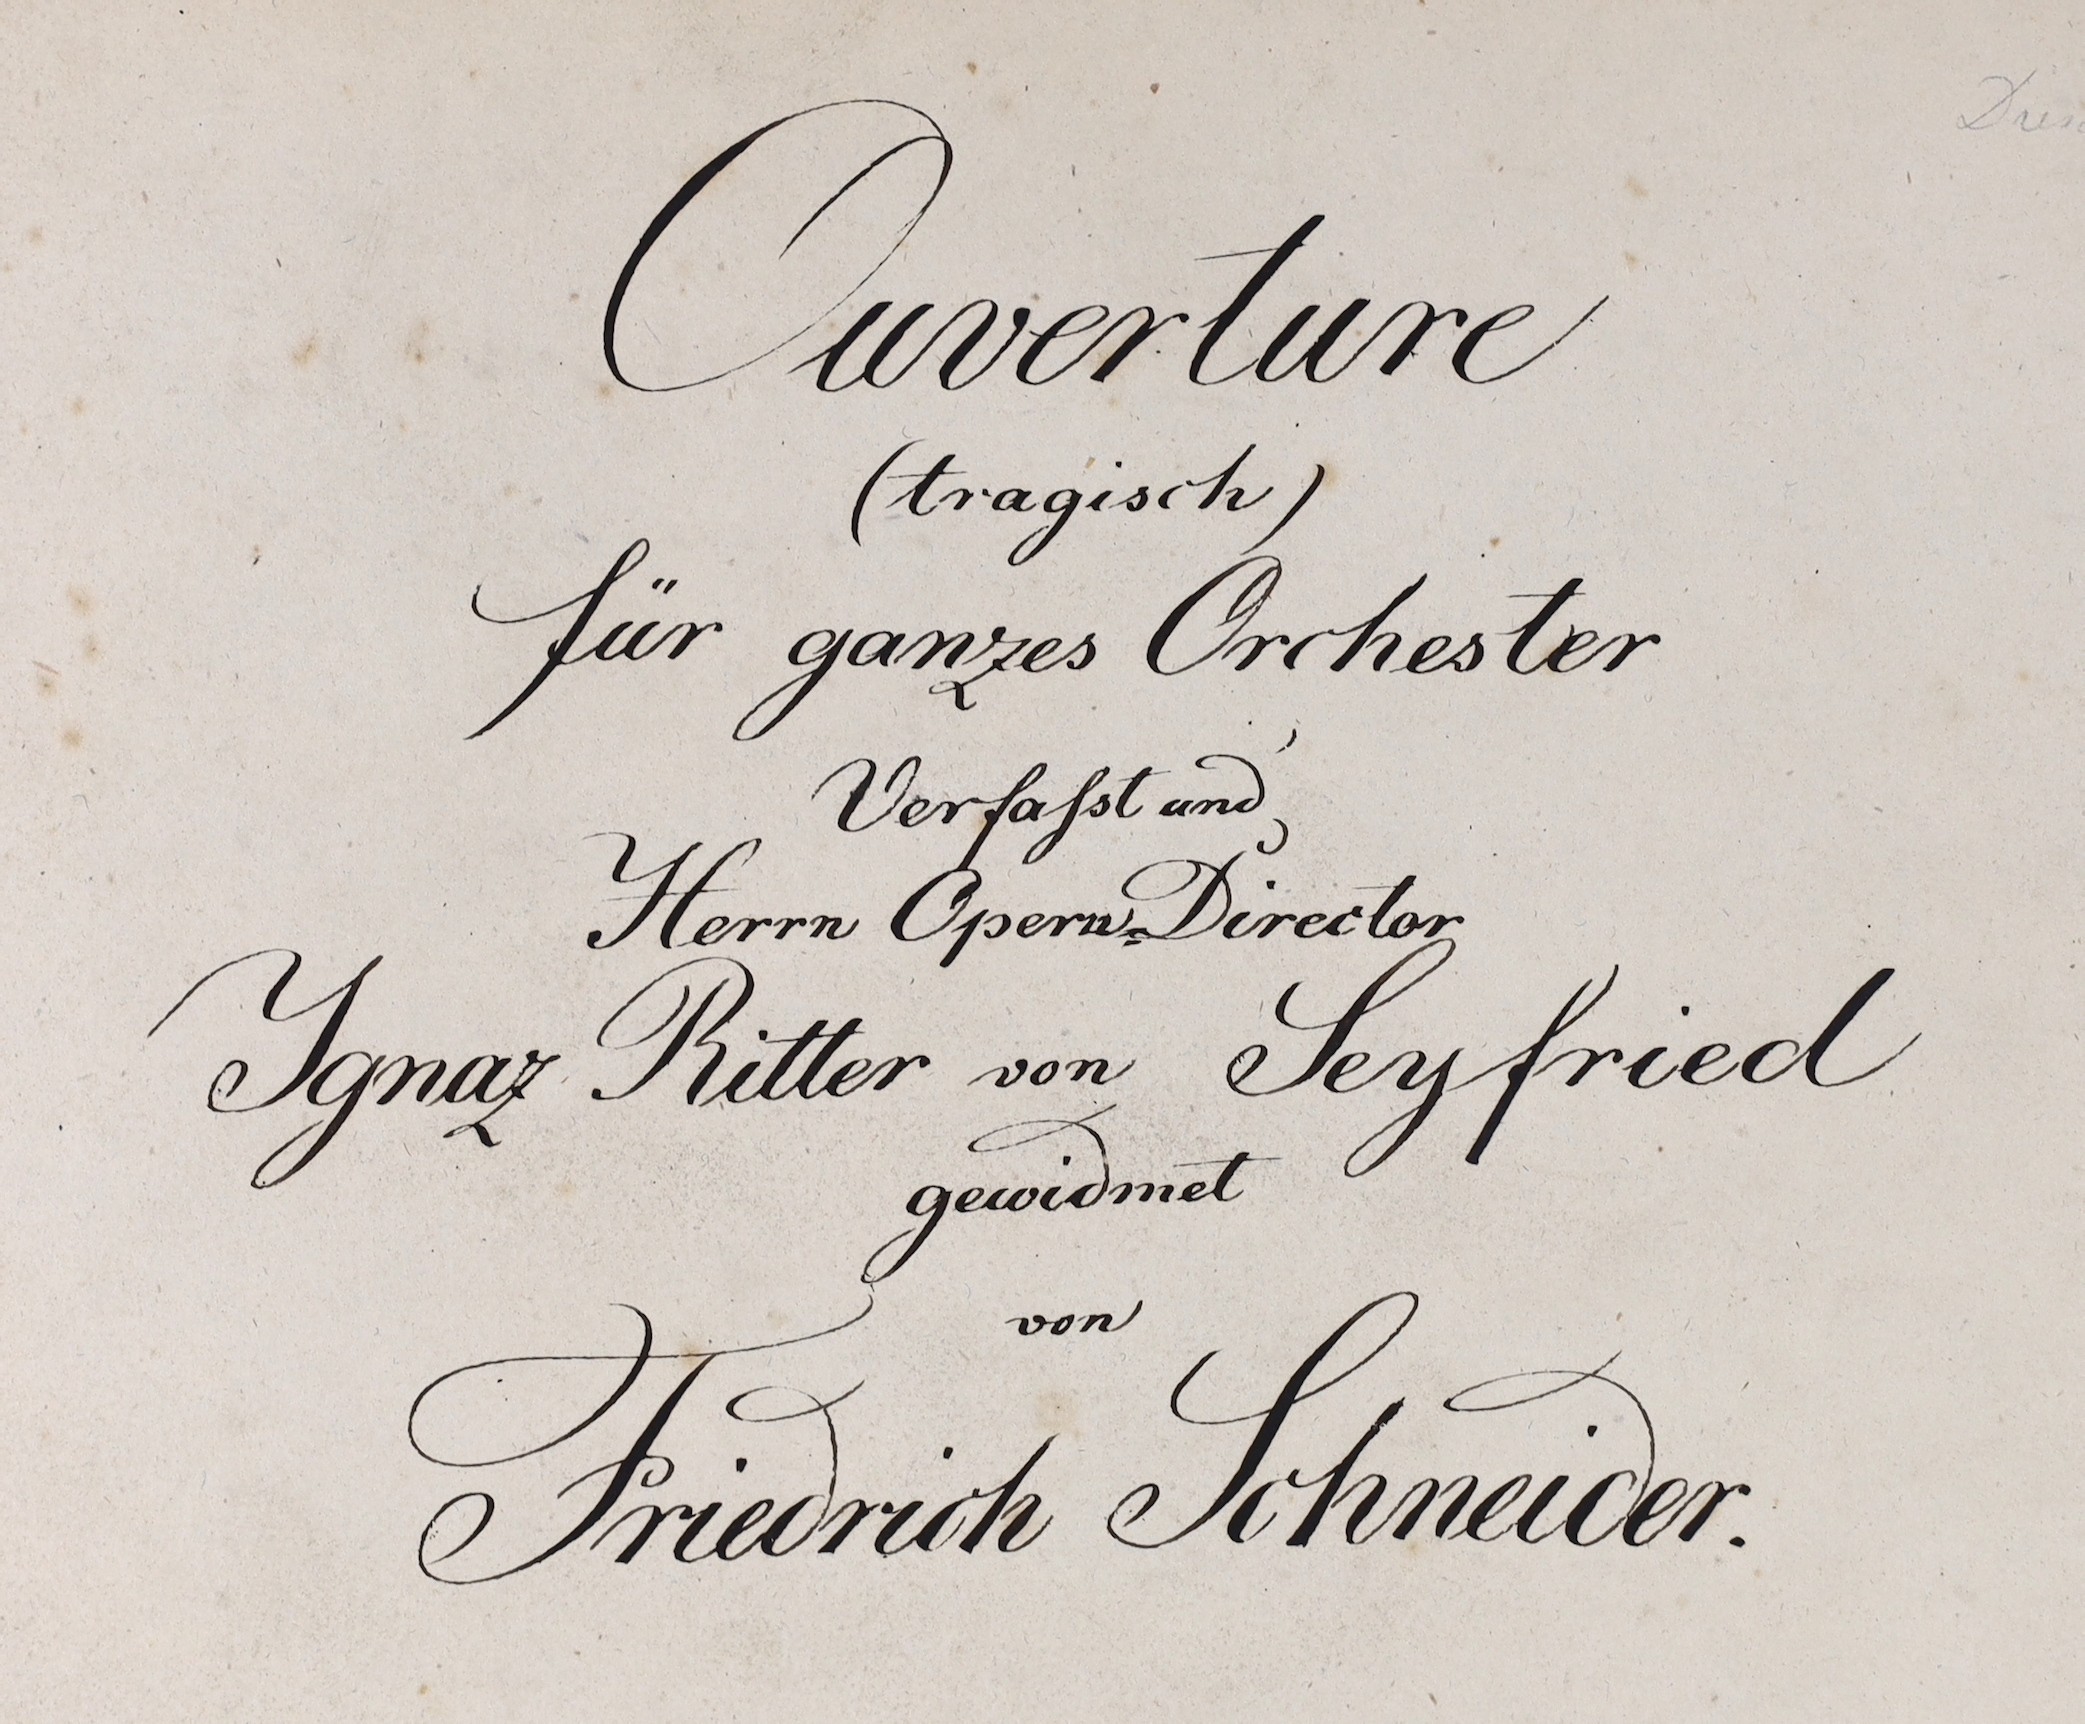 Ouverture
(tragisch)
für ganzes Orchester
Verfaſst und
Herrn Opern=Director
Ignaz Ritter von Seyfried
gewidmet
von
Friedrich Schneider.